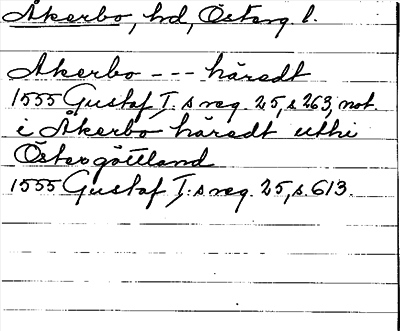 Åkerbo, hd, Österg. l.
Akerbo --- häredt
1555 Gustaf I:s reg. 25, s 263, not.
i Åkerbo häredt uthi
Östergöttland
1555 Gustaf I:s reg. 25, s. 613.